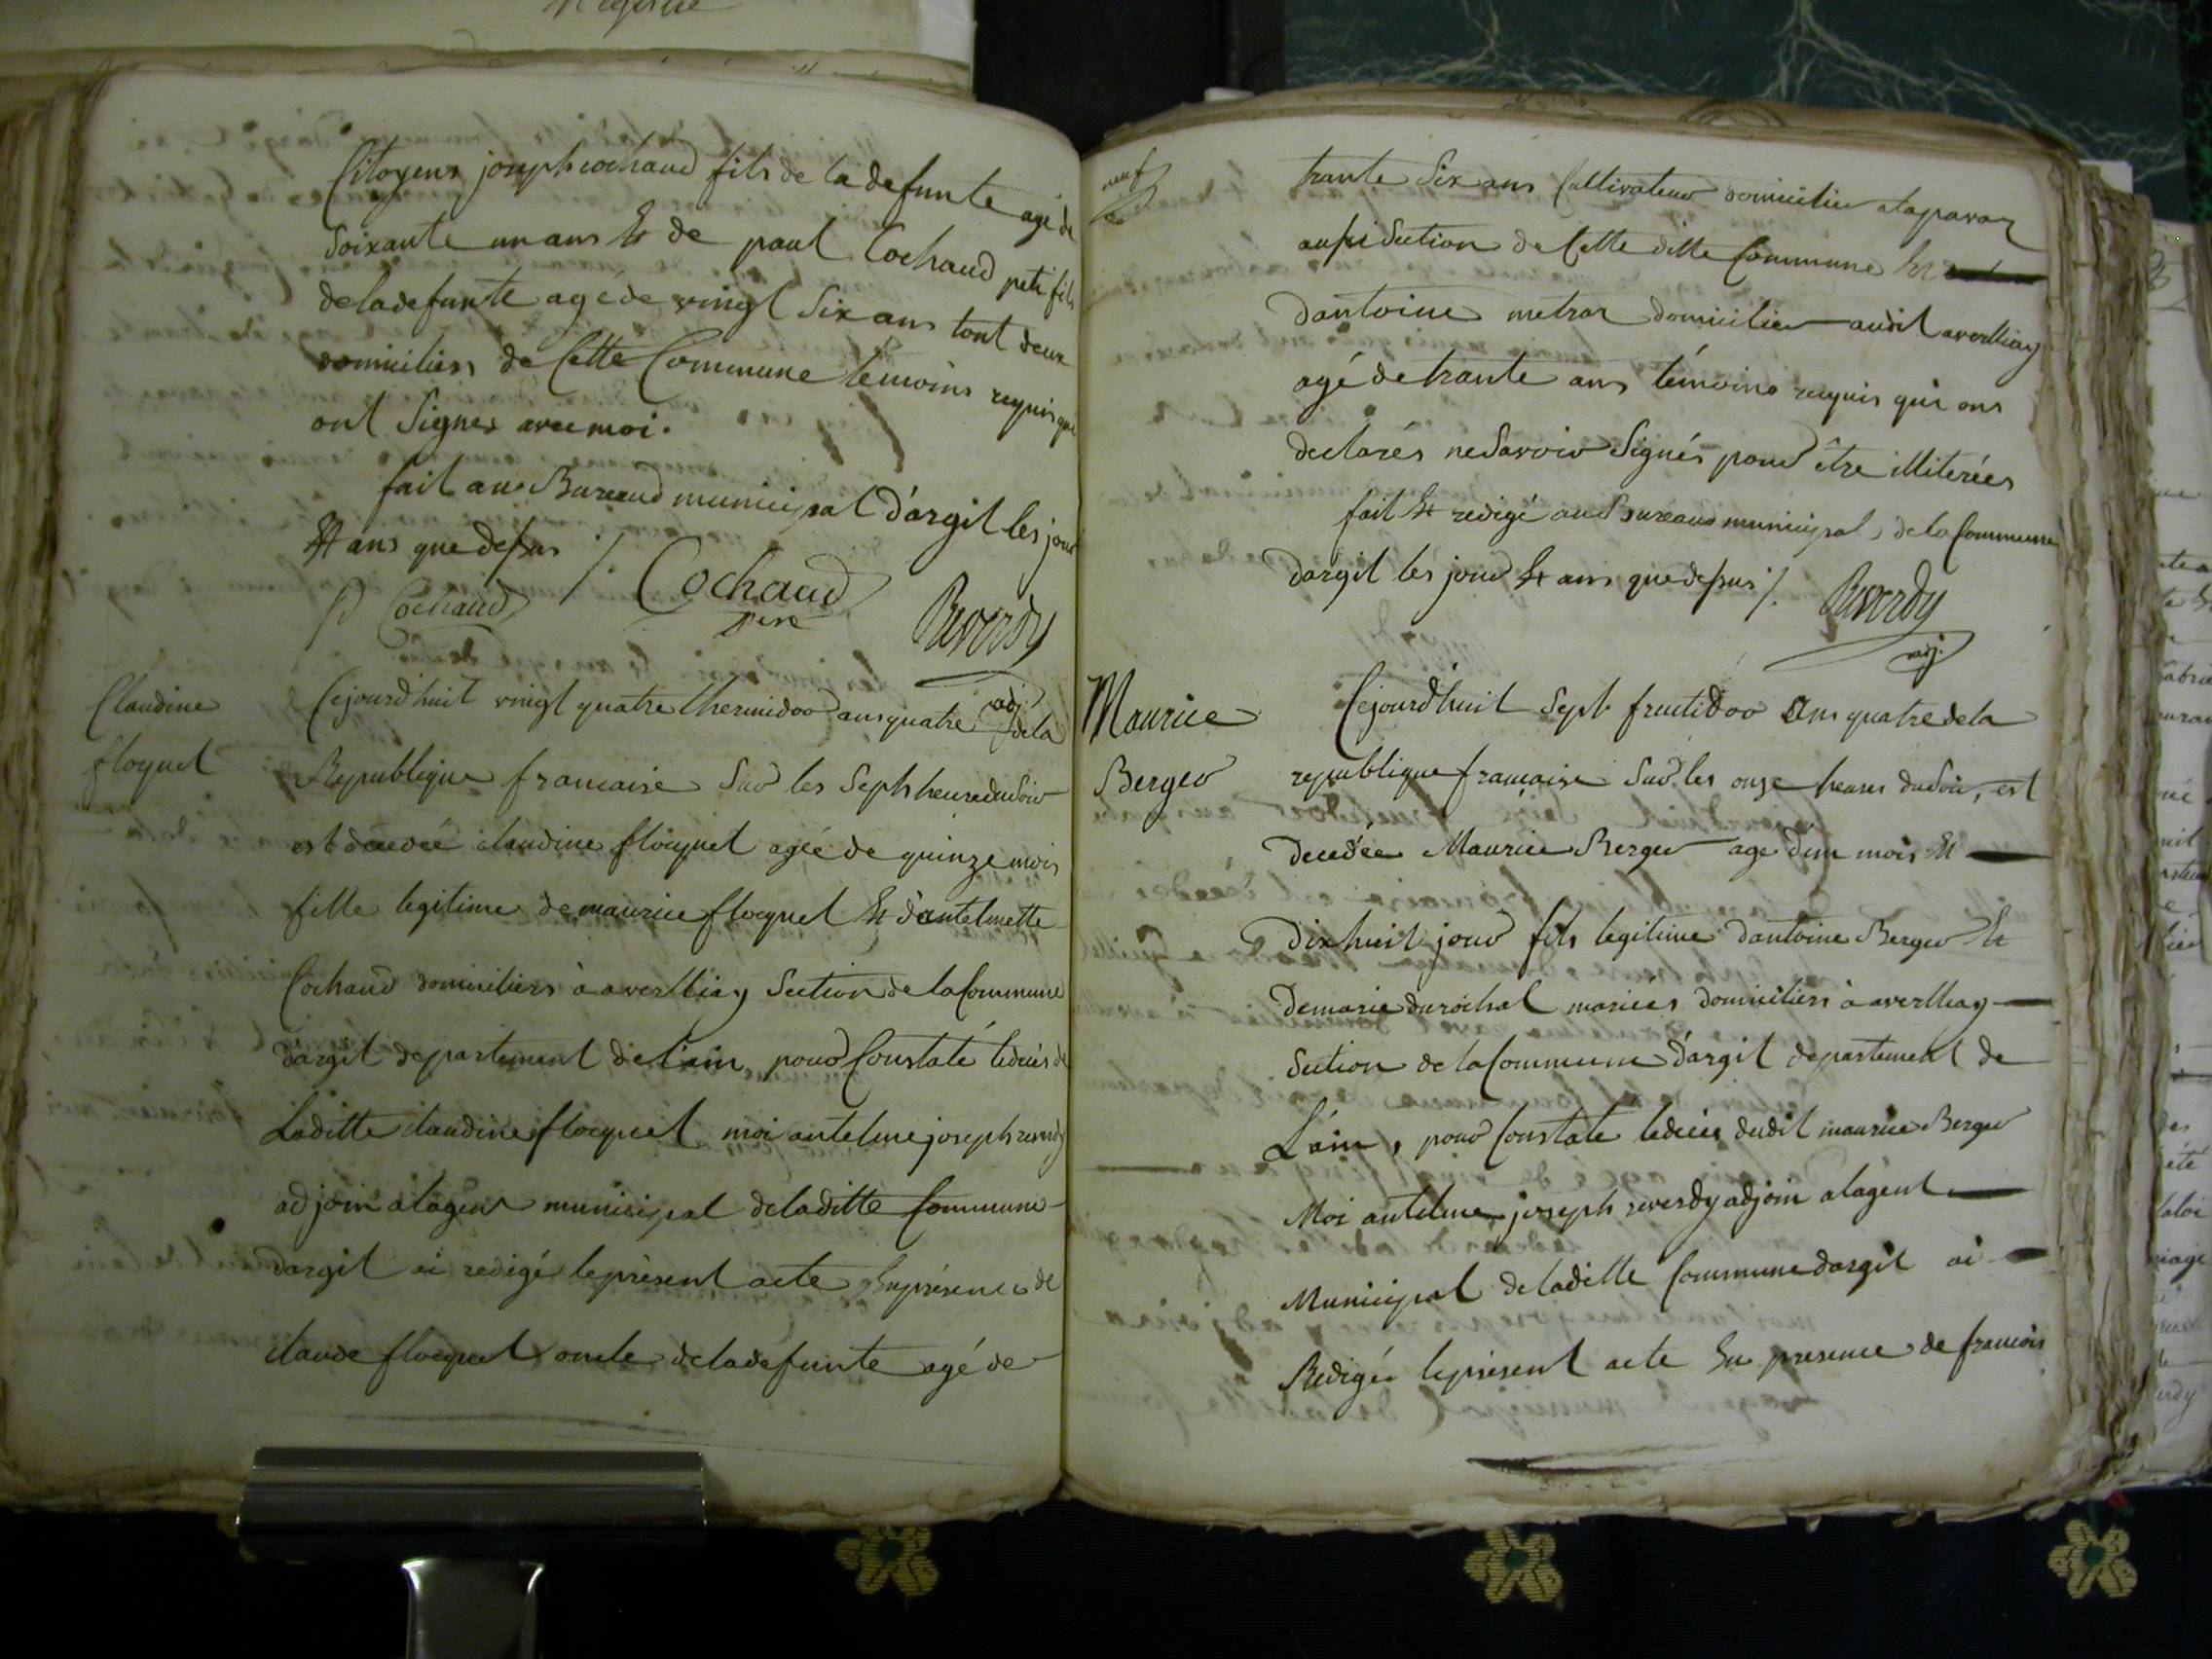 Citoyens joseph cochaud fils de la defunte agé de
soixante un ans & de paul Cochaud petit fils
deladefunte agé de vingt six ans tout deux
domiciliers de Cette Commune temoins requis qui
ont signer avec moi.
fait au Bureaud municipal d'argit les jour
& ans que dessus /.
P Cochaud
Cochaud
pere
Reverdy
adj.
Claudine
floquet
Cejourd'huit vingt quatre thermidoo ans quatre de la
Republique francaise sur les Septs heure du soir
est decedée claudine flocquet agée de quinze mois
fille legitime de maurice flocquet & d'antelmette
Cochaud domiciliers à averlliay Section de la Commune
d'argit departement de l'ain, pour Constaté ledecès de
Laditte claudine flocquet moi antelme joseph reverdy
adjoin alagent municipal deladitte Commune
dargit ai redigé leprésent acte En présence de
claude flocquet oncle deladefunte agé de
neuf
trante Six ans Cultivateur domicilier alaparaz
aussi Section de Cette ditte Commune &
dantoine metraz domicilier audit averlliay
agé detrante ans témoins requis qui ons
declarés nesavoir Signés pour être illiterées
fait & redigé au Bureaud municipal, de la Commune
dargit les jour & ans que dessus /.
Reverdy
adj.
Maurice
Berger
Cejourd'huit Sept fructidoo Ans quatre dela
republique française Sur les onze heures du Soir, est
decedée Maurice Berger agé d'un mois &
Dix huit jour fils legitime dantoine Berger &
demarie durochat mariées domiciliers à averlliay
Section de la Commune d'argit departement de
L'ain, pour Constate ledecès dudit maurice Berger
Moi antelme joseph reverdy adjoin alagent
Municipal deladitte Commune dargit ai
Redigée leprésent acte En presence de francois